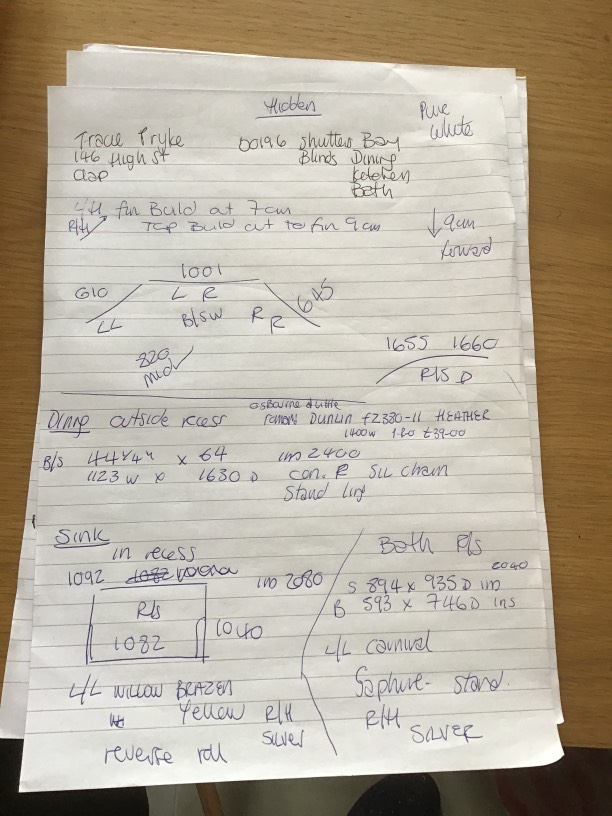 Hidden
Pure White
Tracie Pryke
146 High St
Clap
00196 Shutters Bay
Blinds Dining
Kitchen
Bath
L/H fin Build at 7cm
R/H
Top Build out to fin 9cm
↓ 9cm
forward
1001
610 L R 615
LL B/SW R R
820
mid ✓
1655 1660
R/S D
Dining outside recess
Osbourne & Little
Romans Dunlin F2330-11 HEATHER
1400w £39.00
B/S 44 1/4" x 64 im 2400
1123 w x 1630 D con. R Sil chain
Stand
Sink
in recess
1092 1082 im 2080
R/S
1082 1040
L/L WILLOW BRAZEN
Yellow R/H
Silver
reverse roll
Bath R/S
2040
S 894 x 935 D im
B 593 x 746 D ins
L/L carnival
Saphire - stand.
R/H
SILVER